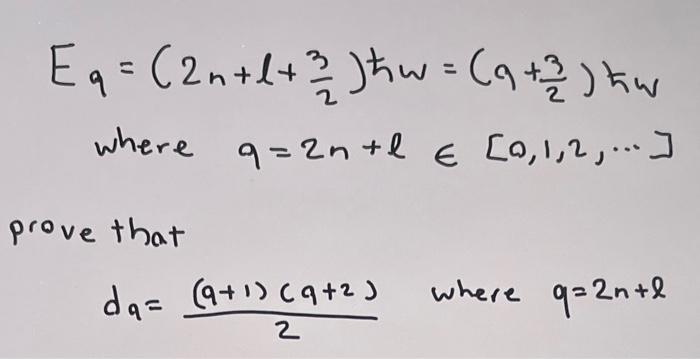 E_q = (2n+l+3/2)ħw = (q+3/2)ħw
where q=2n+l ∈ [0,1,2,...]
prove that
d_q = (q+1)(q+2)/2 where q=2n+l